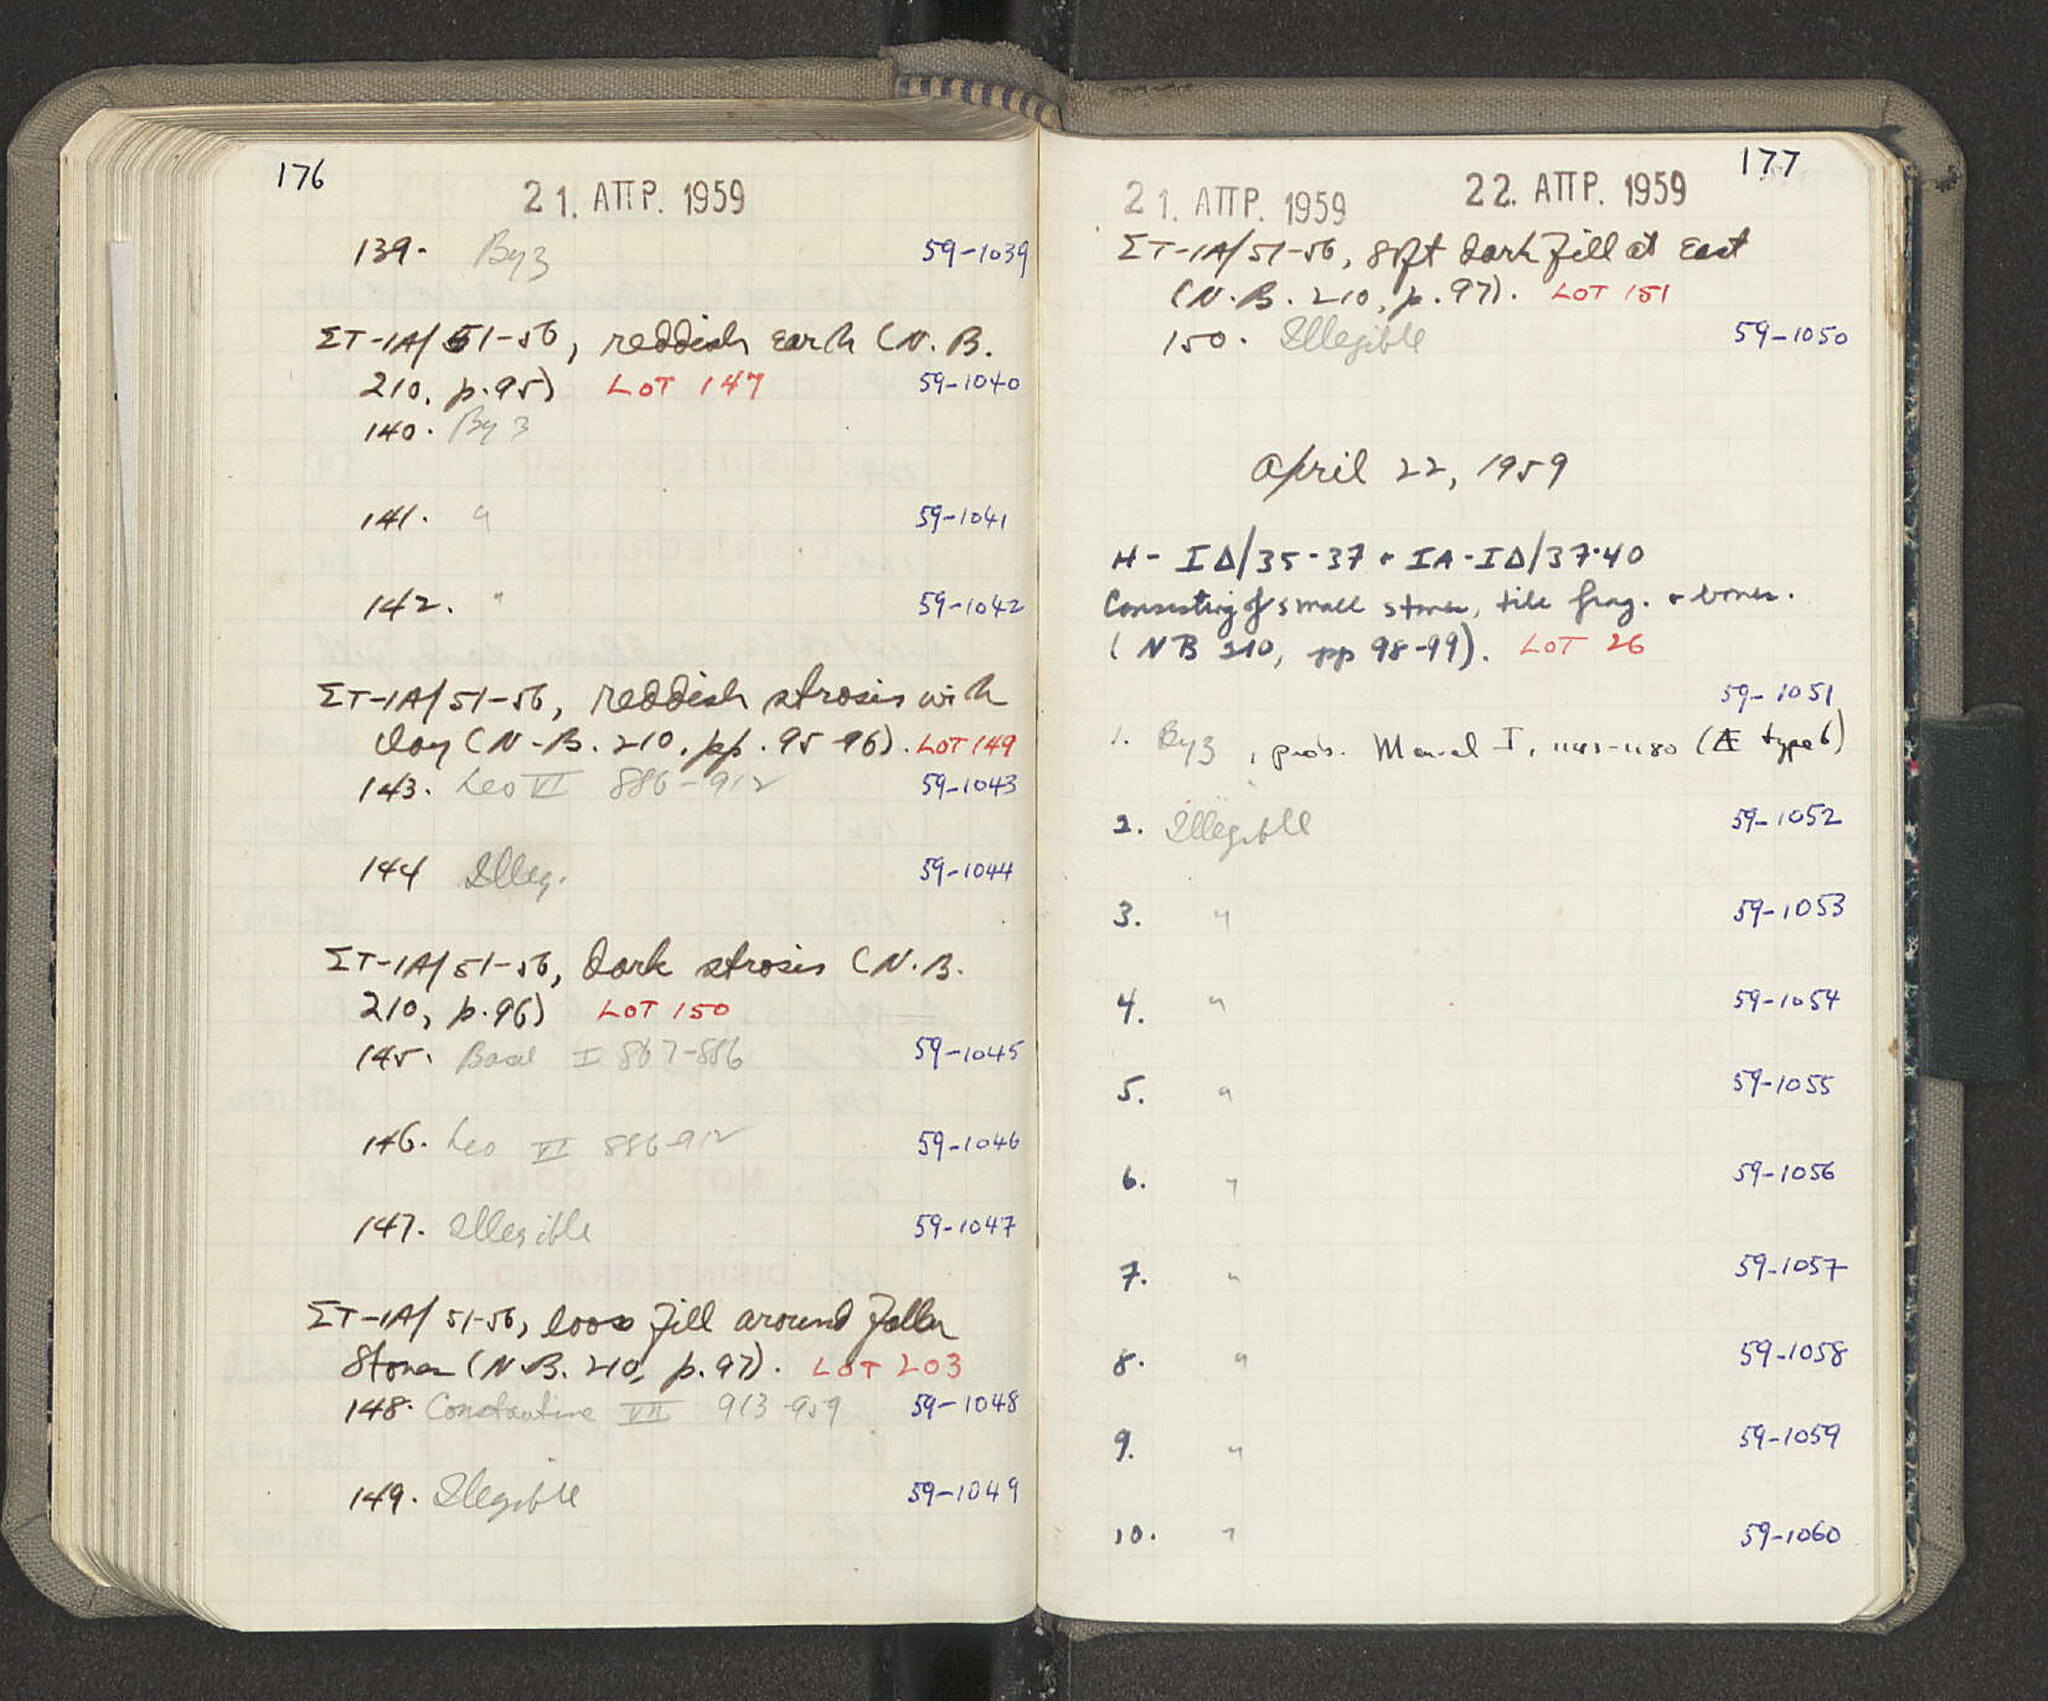 176
21. ΑΠΡ. 1959
139. Byz 59-1039
ΣT-IA/51-56, reddish earth (N.B.
210, p.95) LOT 147 59-1040
140. Byz
141. " 59-1041
142. " 59-1042
ΣT-IA/51-56, reddish strosis with
clay (N.B. 210, pp. 95-96). LOT 149
143. Leo VI 886-912 59-1043
144 Illeg. 59-1044
ΣT-IA/51-56, dark strosis (N.B.
210, p.96) LOT 150
145. Basil I 867-886 59-1045
146. Leo VI 886-912 59-1046
147. Illegible 59-1047
ΣT-IA/51-56, loose fill around fallen
stones (N.B. 210, p.97). LOT 203
148. Constantine VII 913-959 59-1048
149. Illegible 59-1049
177
21. ΑΠΡ. 1959 22. ΑΠΡ. 1959
ΣT-IA/51-56, soft dark fill at east
(N.B. 210, p.97). LOT 151
150. Illegible 59-1050
April 22, 1959
H-IΔ/35-37 + IA-IΔ/37-40
Consisting of small stones, tile frag. + bones.
(NB 210, pp 98-99). LOT 26
59-1051
1. Byz, prob. Manuel I, 1143-1180 (Æ type 6)
2. Illegible 59-1052
3. " 59-1053
4. " 59-1054
5. " 59-1055
6. " 59-1056
7. " 59-1057
8. " 59-1058
9. " 59-1059
10. " 59-1060